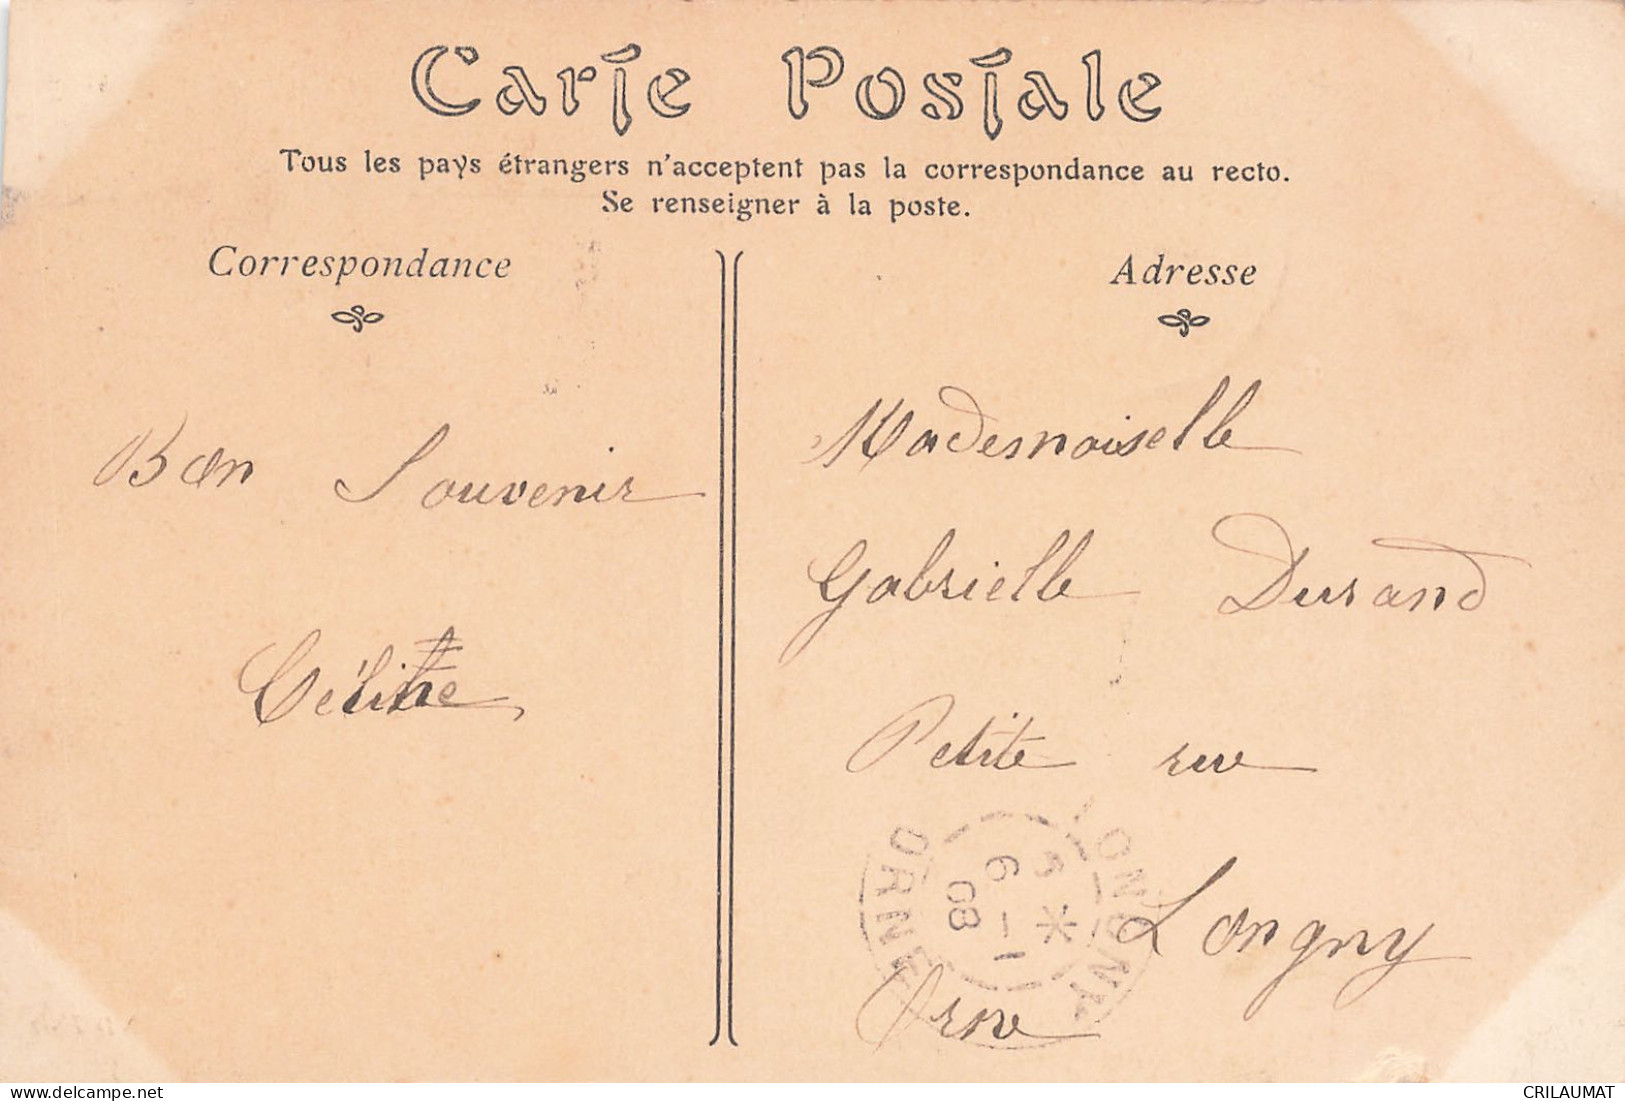 Carte Postale
Tous les pays étrangers n'acceptent pas la correspondance au recto.
Se renseigner à la poste.
Correspondance
Adresse
Bon Souvenir
Céline
Mademoiselle
Gabrielle Durand
Petite rue
Longny
Orne
LONGNY
ORNE
6 - 1
08
delcampe.net
CRILAUMAT